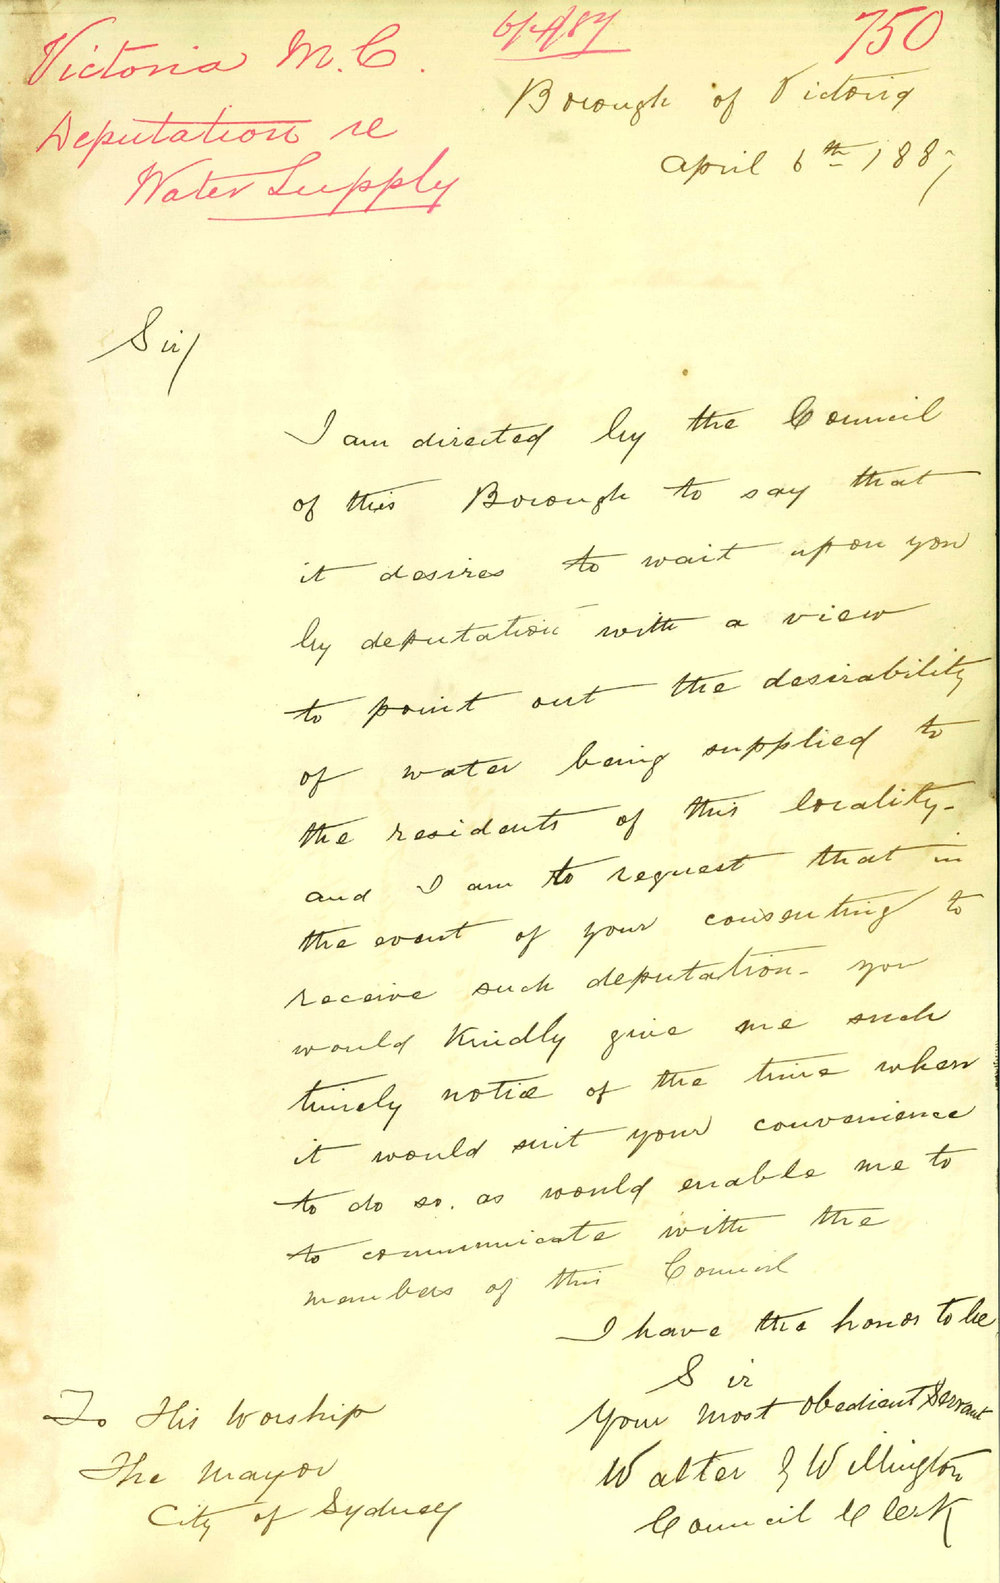 Victoria M.C.
6/4/87
750
Deputation re
Water Supply
Borough of Victoria
April 6th 1887
Sir/
I am directed by the Council
of this Borough to say that
it desires to wait upon you
by deputation with a view
to point out the desirability
of water being supplied to
the residents of this locality-
and I am to request that in
the event of your consenting to
receive such deputation- you
would kindly give me such
timely notice of the time when
it would suit your convenience
to do so. as would enable me to
to communicate with the
members of this Council
I have the honor to be
Sir
Your most obedient Servant
Walter J Willington
Council Clerk
To His Worship
The Mayor
City of Sydney